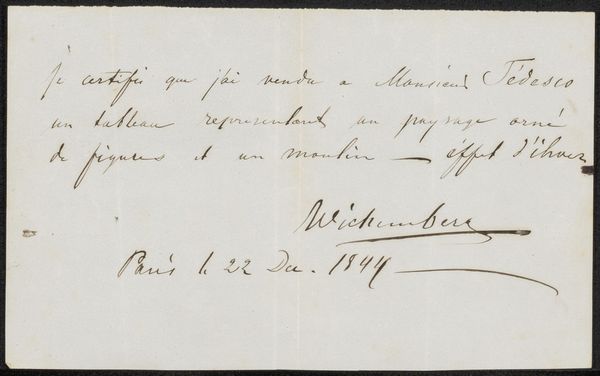 je certifie que j'ai vendu a Monsieur Tédesco
un tableau representant un paysage orné
de figures et un moulin — effet d'ihver
Wickemberg
Paris le 22 Dec. 1844